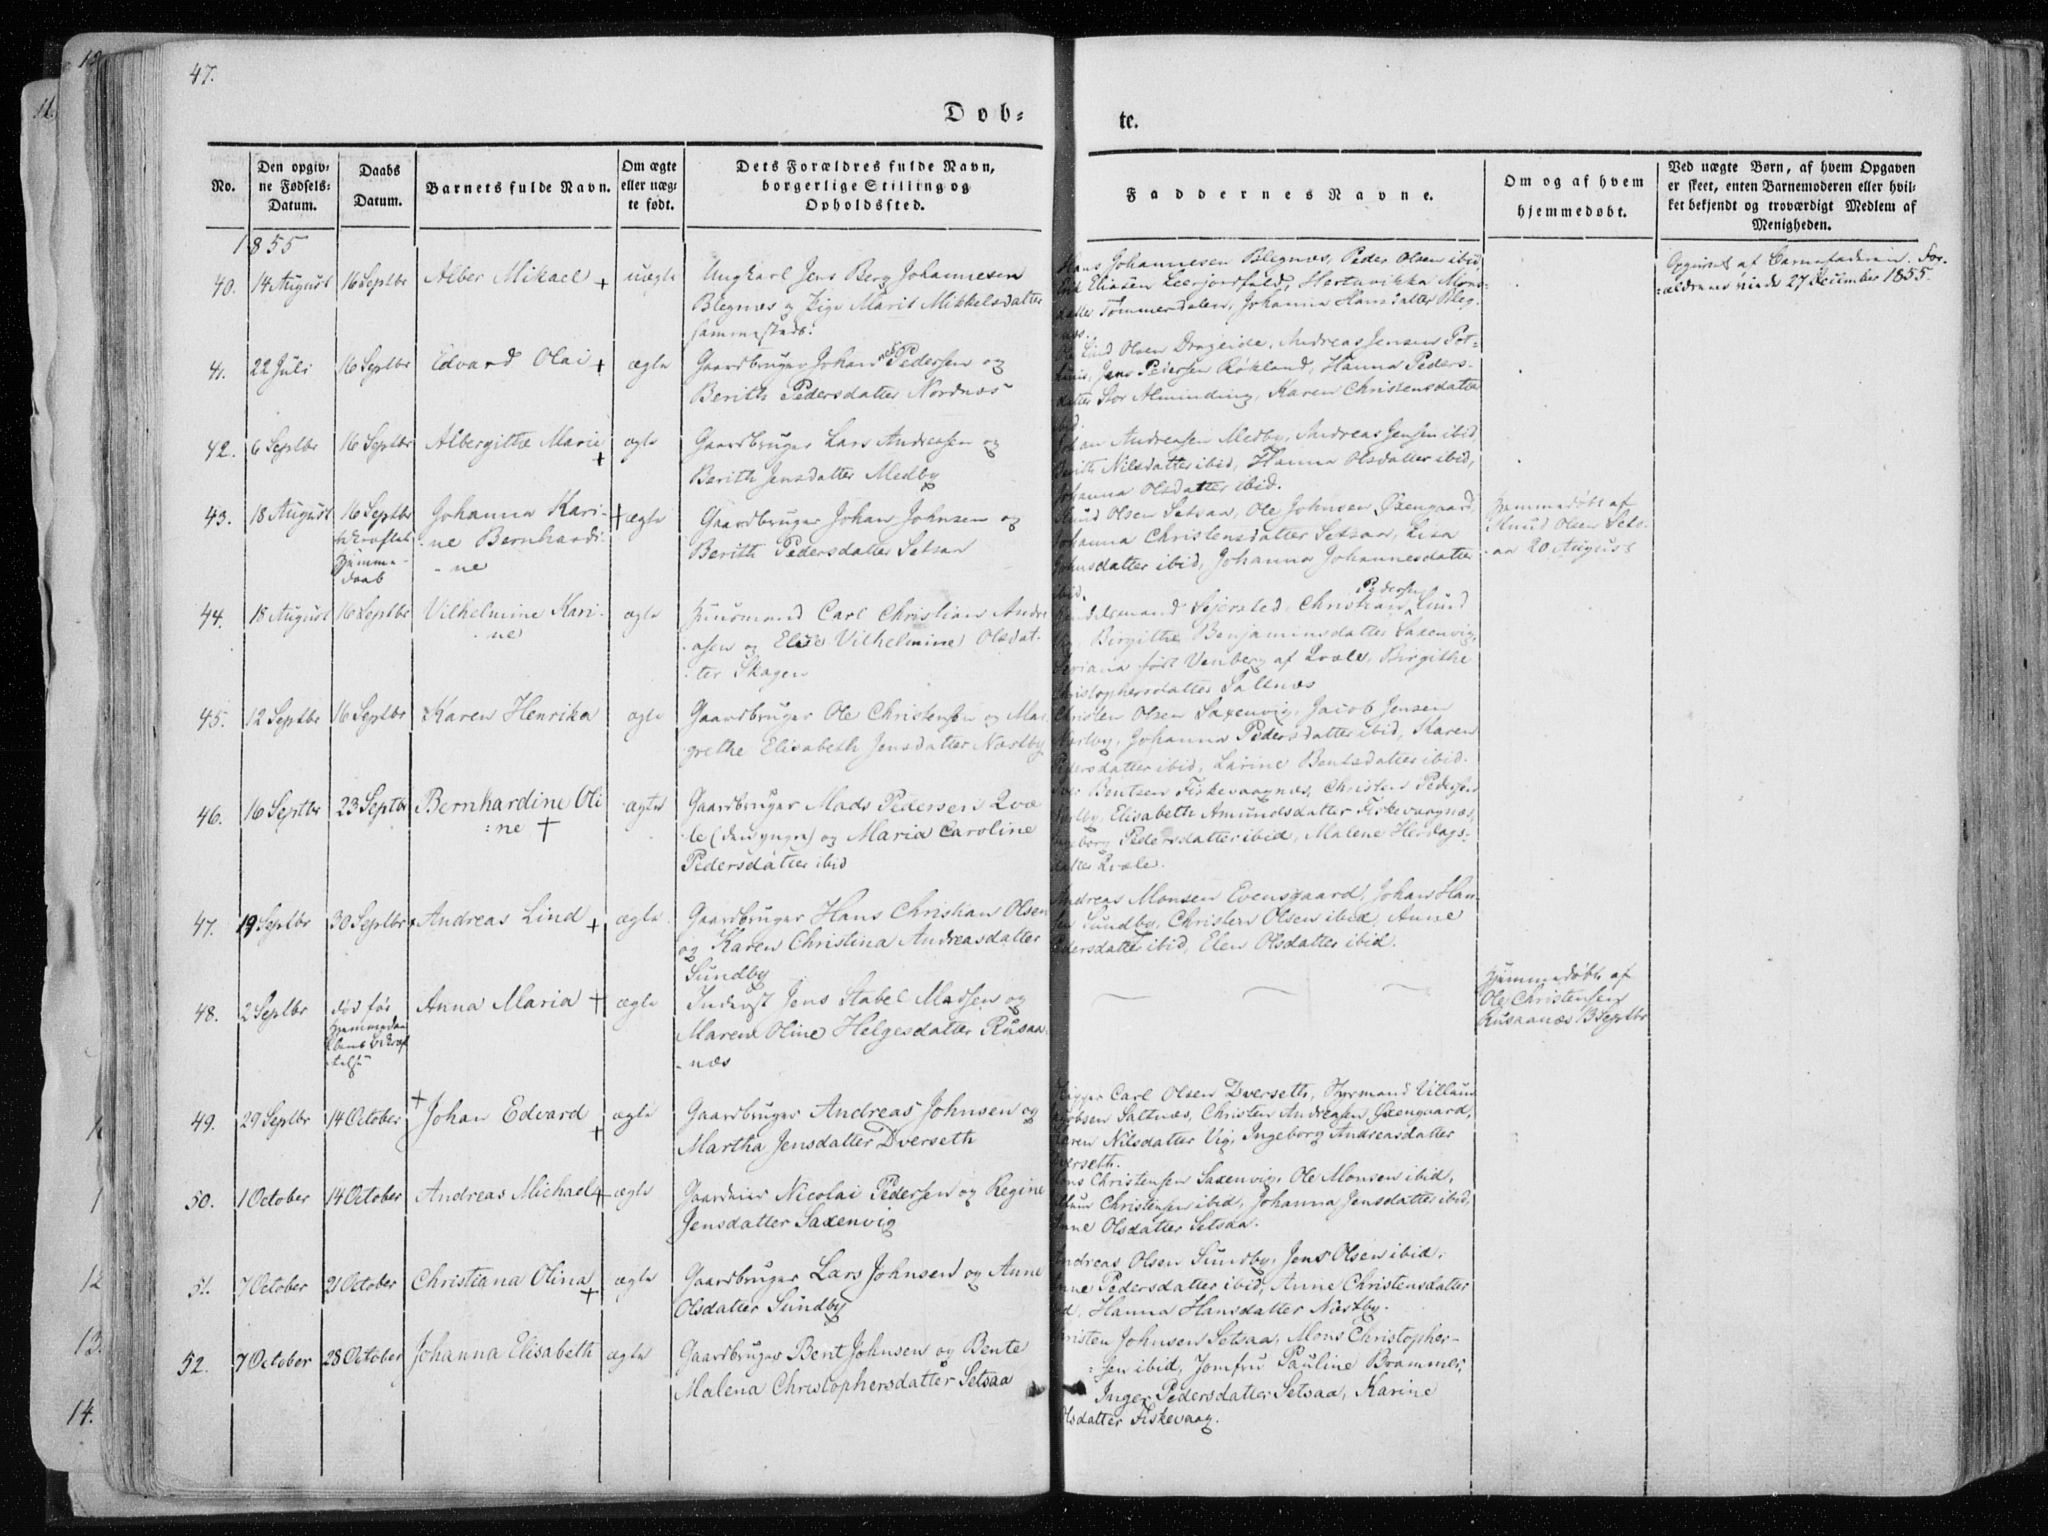 47.
Døb-
te.
No.
Den opgiv-
ne Fødsels-
Datum.
Daabs
Datum.
Barnets fulde Navn.
Om ægte
eller uæg-
te født.
Dets Forældres fulde Navn,
borgerlige Stilling og
Opholdssted.
Faddernes Navne.
Om og af hvem
hjemmedøbt.
Ved uægte Børn, af hvem Opgaven
er skeet, enten Barnemoderen eller hvil-
ket bekjendt og troværdigt Medlem af
Menigheden.
1855
40. 14 August 16 Septbr Alber Mikael + uægte
Ungkarl Jens Berg Johannesen
Blegnæs og Pige Marit Mikkelsdatter
sammesteds.
Hans Johannesen Blegnæs, Peder Olsen ibid
Eliasen Leerjordfald,
Tømmerdalen, Johanna Hansdatter Bleg-
Opgivet af Barnefaderen. For-
ældrene viede 27 December 1855.
41. 22 Juli 16 Septbr Edvard Olai + ægte
Gaardbruger Johan Pedersen og
Berith Pedersdatter Nordnæs
Lind Olsen Drageide, Andreas Jensen
Jens Petersen Røkland, Hanna Peders-
datter Stor Alminding, Karen Christensdatter
ibid
42. 6 Septbr 16 Septbr Albergithe Marie + ægte
Gaardbruger Lars Andreasen og
Berith Jensdatter Medby
Andreasen Medby, Andreas Jensen ibid,
Berith Nilsdatter ibid, Hanna Olsdatter ibid,
Johanna Olsdatter ibid.
43. 18 August 16 Septbr
bekræftet
Hjemme-
daab
Johanna Kari-
-ne Bernhardi-
-ne
+ ægte
Gaardbruger Johan Johnsen og
Berith Pedersdatter Setsaa
Knud Olsen Setsaa, Ole Johnsen Øxengaard,
Johanna Christensdatter Setsaa, Lisa
Johnsdatter ibid, Johanna Johannesdatter
ibid.
Hjemmedøbt af
Knud Olsen Sets-
-aa 20 August
44. 18 August 16 Septbr Vilhelmine Kari-
-ne
ægte
Huusmand Carl Christian Andre-
-asen og Elise Vilhelmine Olsdat-
-ter Skagen
Pedersen
Handelsmand Sejersted, Christian Lund
Birgithe Benjaminsdatter Saxenvig,
født Venberg af Qvæle, Birgithe
Christophersdatter Saltnæs
45. 12 Septbr 16 Septbr Karen Henrika ægte
Gaardbruger Ole Christensen og Mar-
grethe Elisabeth Jensdatter Næstby
Christen Olsen Saxenvig, Jacob Jensen
Næstby, Johanna Pedersdatter ibid, Karen
Pedersdatter ibid, Larine Bentsdatter ibid.
46. 16 Septbr 23 Septbr Bernhardine Oli
-ne +
ægte
Gaardbruger Mads Pedersen Qvæ
-le (den yngre) og Maria Caroline
Pedersdatter ibid
Bentsen Fiskevaagnæs, Christen Pedersen
Elisabeth Amundsdatter Fiskevaagnæs,
Ingeborg Pedersdatter ibid, Malene
datter Qvæle.
47. 19 Septbr 30 Septbr Andreas Lind + ægte
Gaardbruger Hans Christian Olsen
og Karen Christina Andreasdatter
Sundby
Andreas Monsen Evensgaard, Johan Han-
sen Sundby, Christen Olsen ibid, Anne
Pedersdatter ibid, Elen Olsdatter ibid.
48. 2 Septbr død før
Hjemmedaa-
bens bekræf
telse
Anna Maria + ægte
Inderst Jens Stabel Madsen og
Maren Oline Helgesdatter Rusaa-
-næs
Hjemmedøbt af
Ole Christensen
Rusaanæs 3 Septbr
49. 29 Septbr 14 October Johan Edvard + ægte
Gaardbruger Andreas Johnsen og
Martha Jensdatter Dverseth
Carl Olsen Dverseth, Styrmand Villum
Jacobsen Saltnæs, Christen Andreasen Øxengaard,
Karen Nilsdatter Vig, Ingeborg Andreasdatter
Dverseth.
50. 1 October 14 October Andreas Michael + ægte
Gaardeier Nicolai Pedersen og Regine
Jensdatter Saxenvig
Mons Christensen Saxenvig, Ole Monsen ibid,
Villum Christensen ibid, Johanna Jensdatter ibid,
Anne Olsdatter Setsaa.
51. 7 October 21 October Christiana Olina + ægte
Gaardbruger Lars Johnsen og Anne
Olsdatter Sundby
Andreas Olsen Sundby, Jens Olsen ibid,
Anne Pedersdatter ibid, Anne Christensdatter
ibid, Hanna Hansdatter Næstby.
52. 7 October 28 October Johanna Elisabeth ægte
Gaardbruger Bent Johnsen og Bente
Malena Christophersdatter Setsaa
Christen Johnsen Setsaa, Mons Christopher-
-sen ibid, Jomfru Pauline Brammer,
Inger Pedersdatter Setsaa, Karine
Olsdatter Fiskevaag.
12
13.
14.